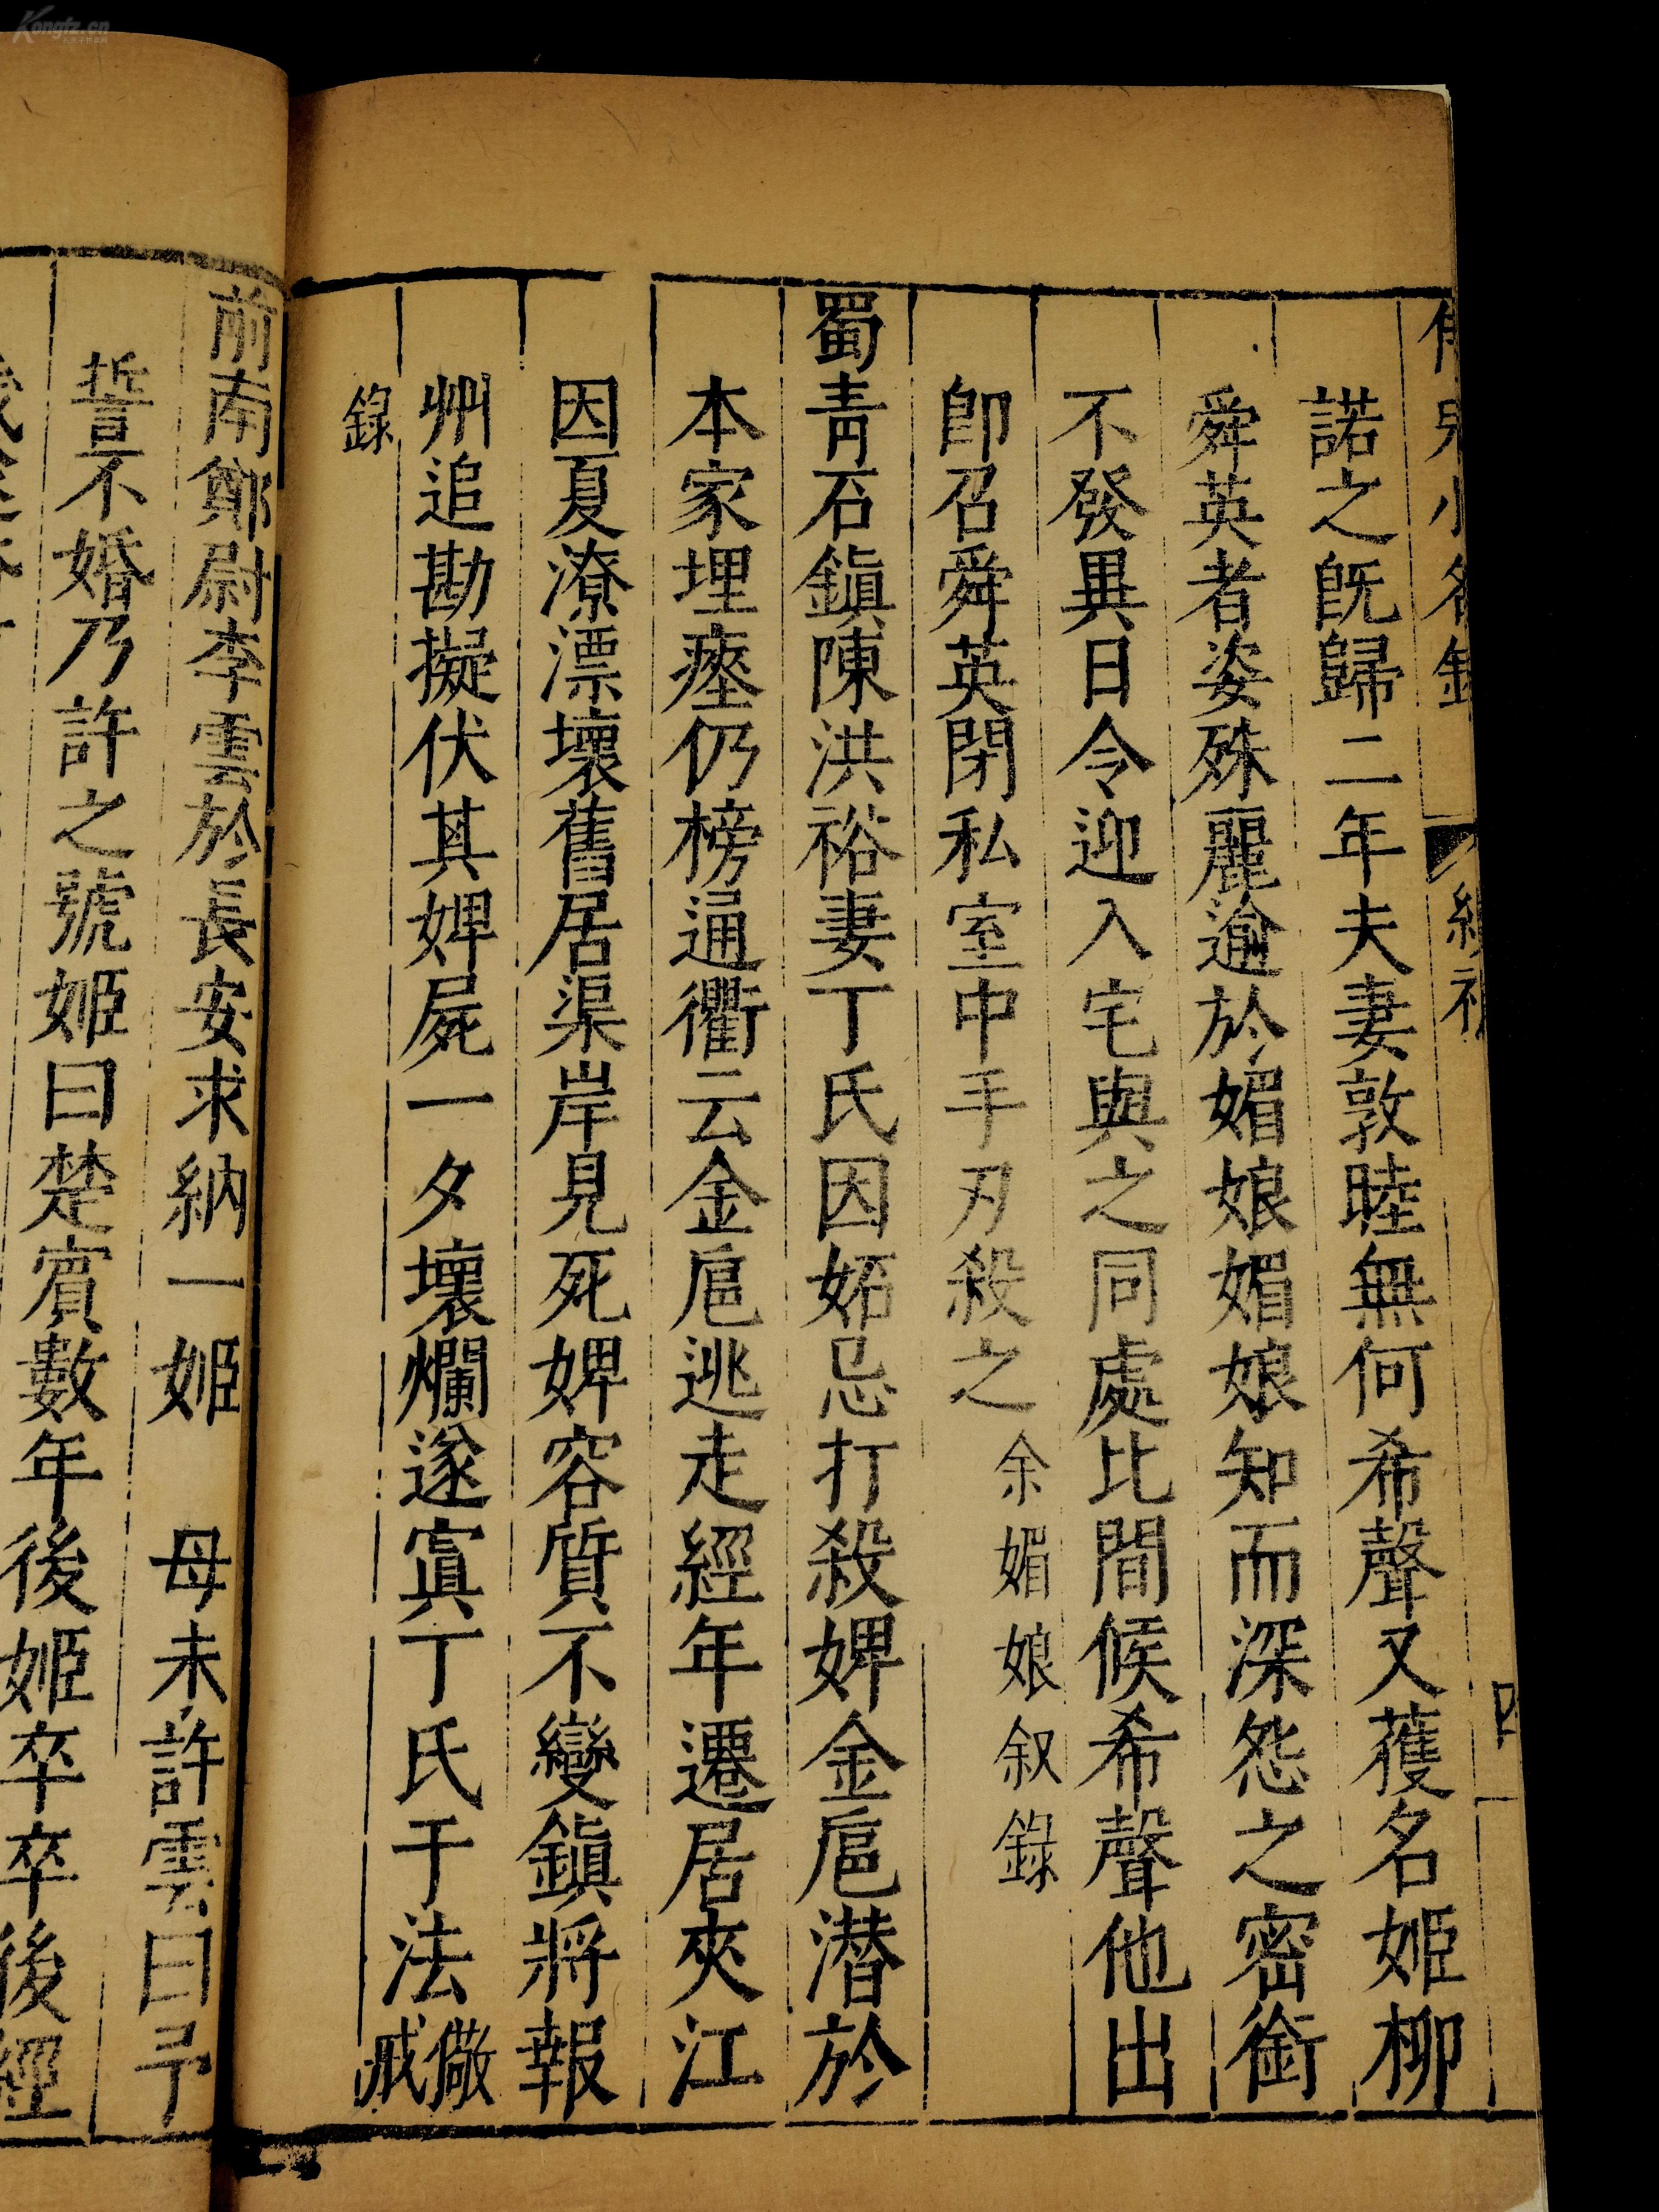 兒小名錄
諾之旣歸二年夫妻敦睦無何希聲又獲名姬柳
舜英者姿殊麗逾於媚娘媚娘知而深怨之密銜
不發異日令迎入宅與之同處比間候希聲他出
卽召舜英閉私室中手刃殺之余媚娘叙錄
蜀靑石鎭陳洪裕妻丁氏因妬忌打殺婢金巵潜於
本家埋瘞仍榜通衢云金巵逃走經年遷居夾江
因夏潦漂壞舊居渠岸見死婢容質不變鎭將報
州追勘擬伏其婢屍一夕壞爛遂寘丁氏于法儆戒
錄
前南鄭尉李雲於長安求納一姬 母未許雲曰予
誓不婚乃許之號姬曰楚賓數年後姬卒卒後經
Kongfz.cn